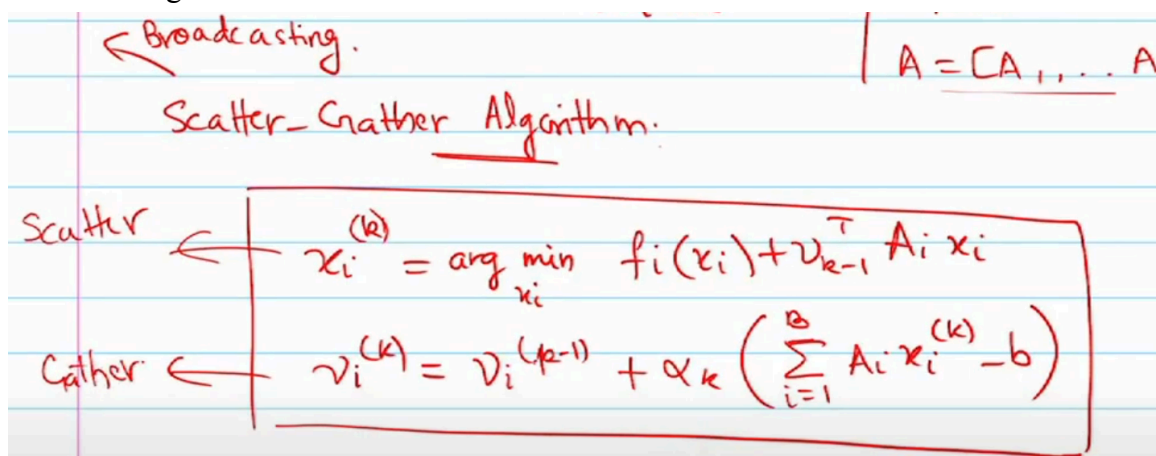 Broadcasting.
A = [A₁, ... A
Scatter-Gather Algorithm.
Scatter ← xᵢ⁽ᵏ⁾ = arg min_{xᵢ} fᵢ(xᵢ) + νₖ₋₁ᵀ Aᵢ xᵢ
Gather ← νᵢ⁽ᵏ⁾ = νᵢ⁽ᵏ⁻¹⁾ + αₖ ( ∑_{i=1}^{B} Aᵢ xᵢ⁽ᵏ⁾ - b )